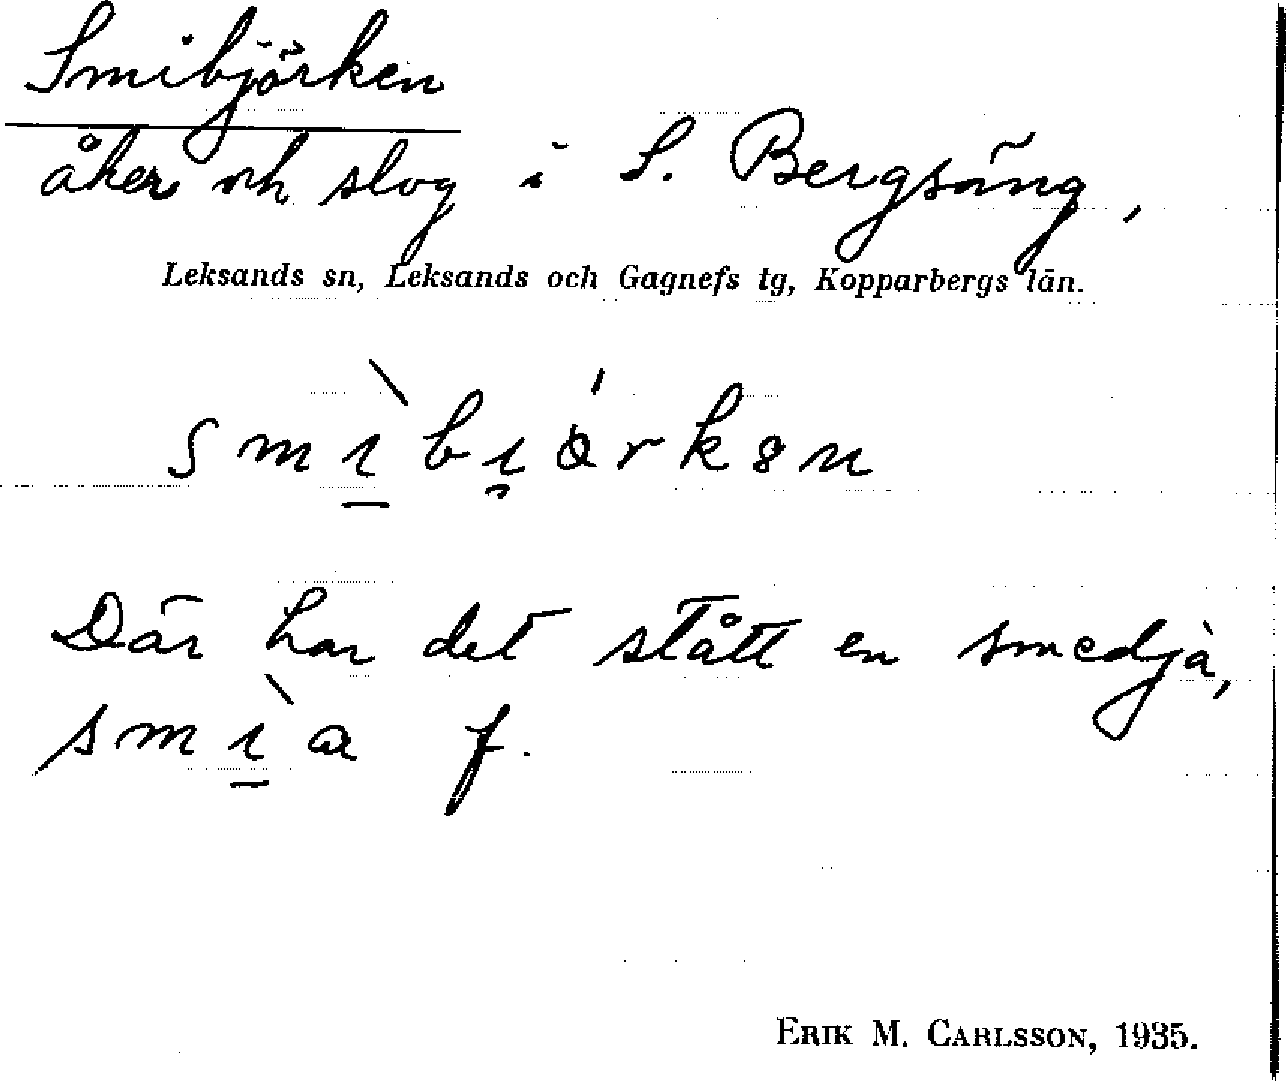 Smibjörken
åker och slog i S. Bergsäng,
Leksands sn, Leksands och Gagnefs tg, Kopparbergs län.
smı̱̀bı̯ȯ́rkən
Där har det stått en smedja,
smı̱̀a f.
ERIK M. CARLSSON, 1935.